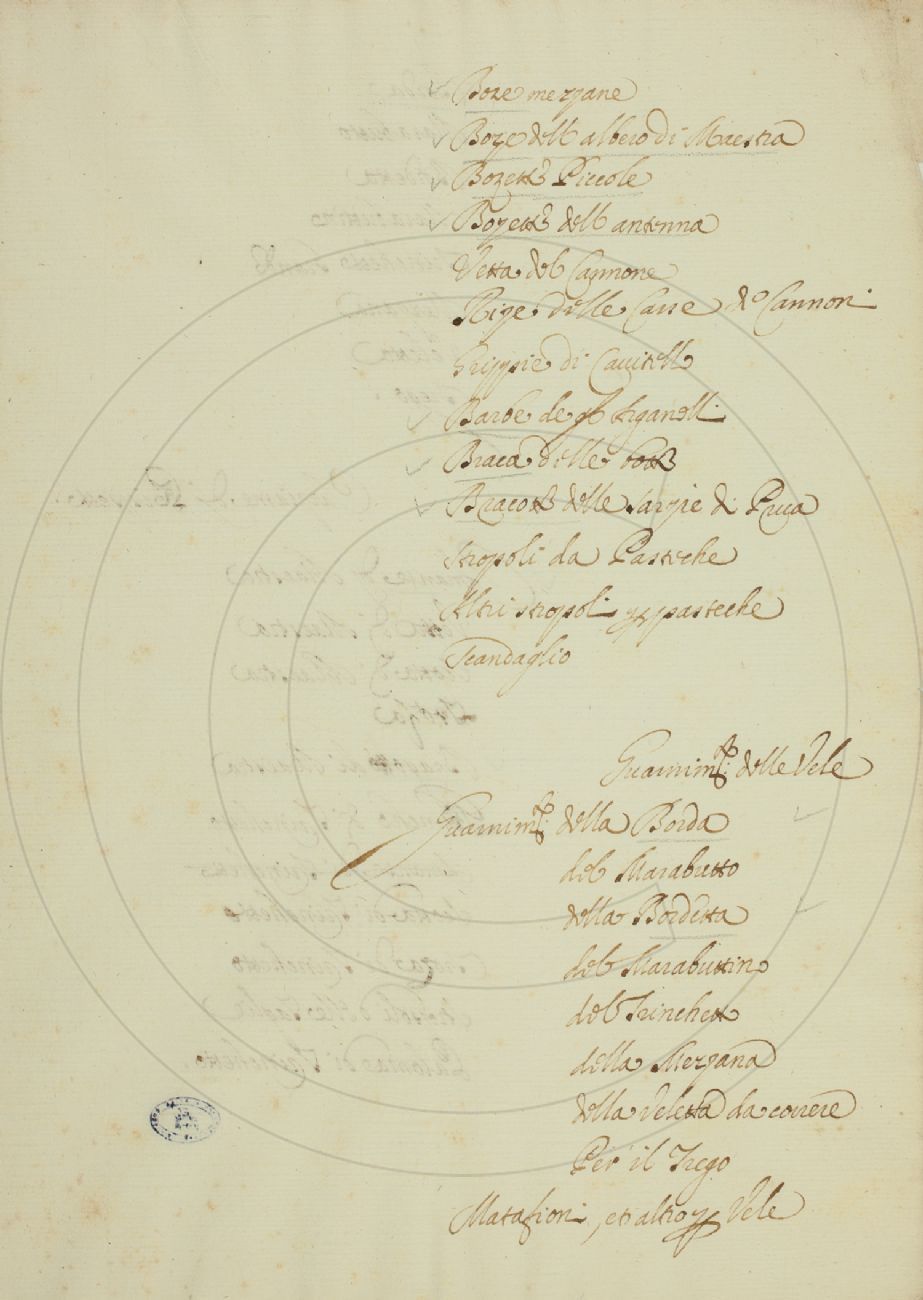 Boze mezzane
Boze dell albero di Maestra
Bozette Piccole
Bozette dell antenna
Vetta del Cannone
Rize delle Casse de Cannoni
Grippie di
Barbe de
Braca delle botti
Bracotti delle sarzie di
stropoli da Pasteche
Altri stropoli pasteche
Scandaglio
Guarnimti: delle Vele
Guarnimti: della Borda
del Marabutto
della Bordetta
del Marabuttino
del Trinchetto
della Mezzana
della Veletta da correre
Per il Trego
Matafioni, et altro Vele